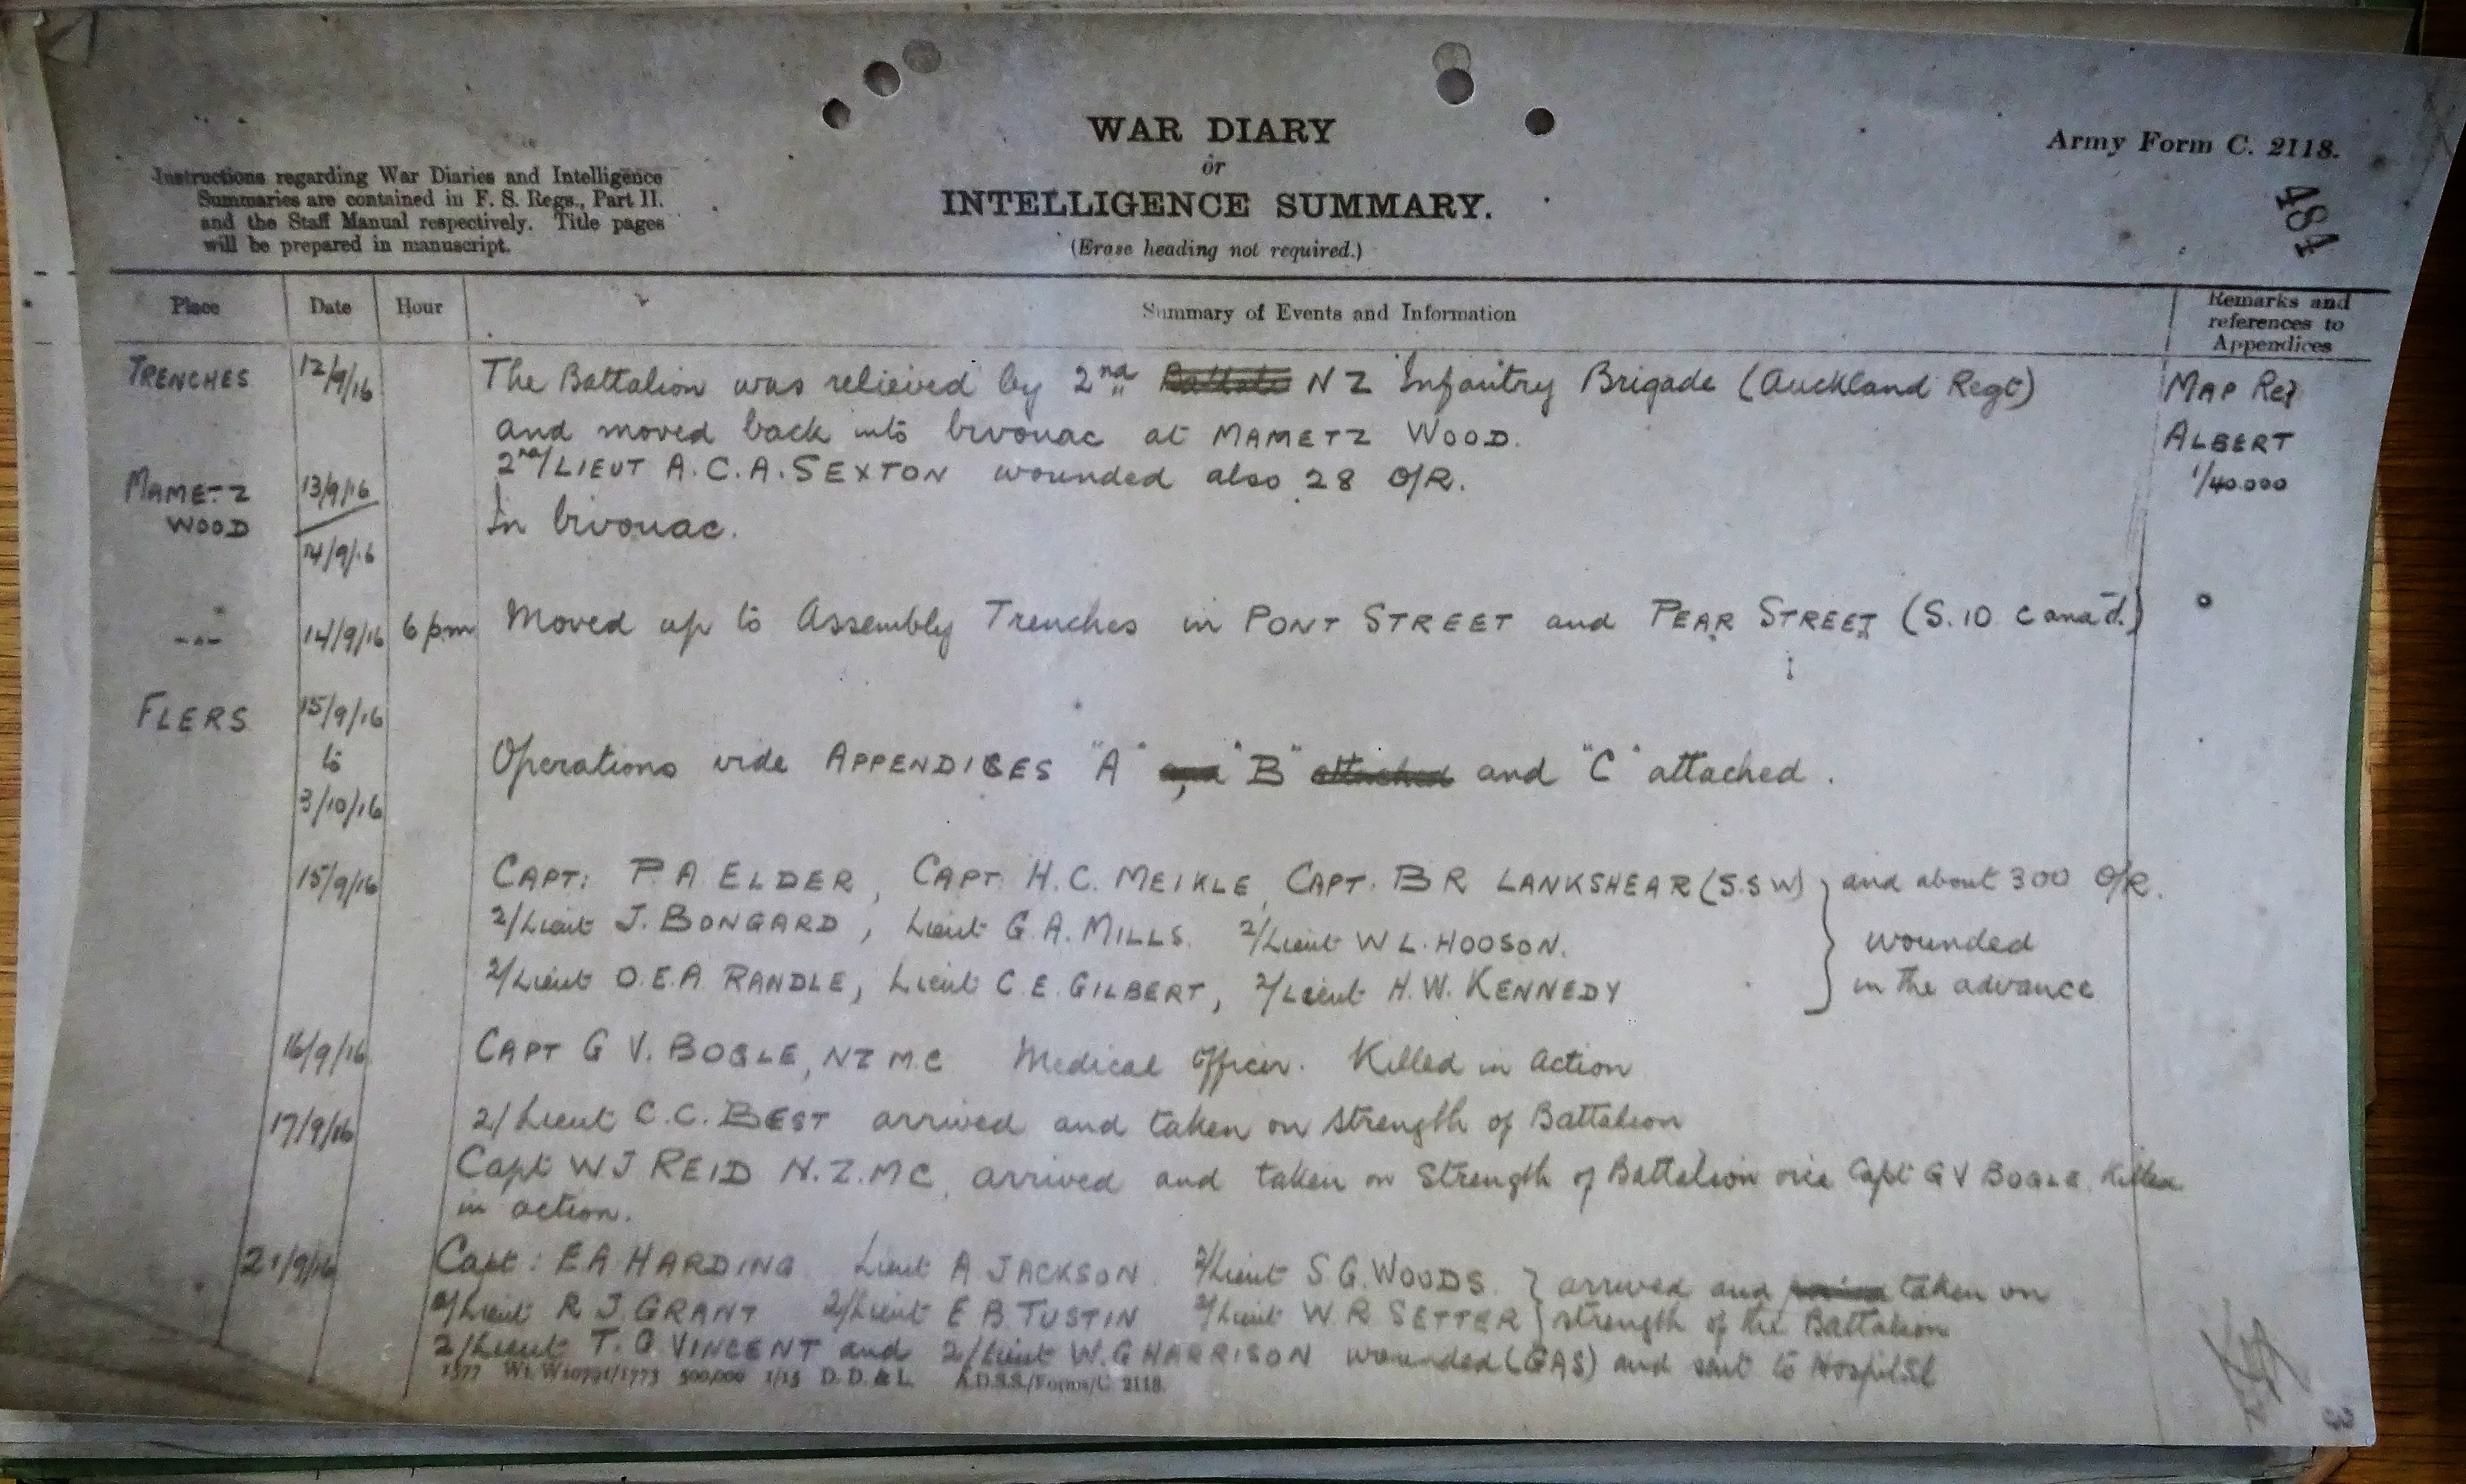 WAR DIARY
or
INTELLIGENCE SUMMARY.
(Erase heading not required.)
Army Form C. 2118.
484
Instructions regarding War Diaries and Intelligence
Summaries are contained in F. S. Regs., Part II.
and the Staff Manual respectively. Title pages
will be prepared in manuscript.
Place Date Hour Summary of Events and Information Remarks and
references to
Appendices
TRENCHES 12/9/16 The Battalion was relieved by 2nd NZ Infantry Brigade (Auckland Regt) MAP Ref
and moved back into bivouac at MAMETZ WOOD. ALBERT
2nd/LIEUT A.C.A. SEXTON wounded also 28 O/R. 1/40.000
MAMETZ 13/9/16
WOOD In bivouac.
14/9/16
-"- 14/9/16 6 pm Moved up to Assembly Trenches in PONT STREET and PEAR STREET (S.10 c and d.)
FLERS 15/9/16
to Operations vide APPENDICES "A" , "B" attached and "C" attached.
3/10/16
15/9/16 CAPT: P A ELDER, CAPT. H.C. MEIKLE, CAPT. B R LANKSHEAR (S.S W) and about 300 O/R.
2/Lieut J. BONGARD, Lieut G.A. MILLS. 2/Lieut W L. HOOSON. wounded
2/Lieut O.E.A RANDLE, Lieut C.E. GILBERT, 2/Lieut H.W. KENNEDY in the advance
16/9/16 CAPT G V. BOGLE, NZ M.C Medical Officer. Killed in Action
17/9/16 2/Lieut C.C. BEST arrived and taken on strength of Battalion
Capt W J REID N.Z.MC, arrived and taken on Strength of Battalion vice Capt G V BOGLE. Killed
in action.
21/9/16 Capt: E A HARDING Lieut A JACKSON. 2/Lieut S G. WOODS. arrived and taken on
2/Lieut R J. GRANT 2/Lieut E B. TUSTIN 2/Lieut W. R SETTER strength of the Battalion
2/Lieut T. G. VINCENT and 2/Lieut W. G HARRISON wounded (GAS) and sent to Hospital
1577 Wt. W10791/1773 500,000 1/15 D. D. & L. A.D.S.S./Forms/C. 2118.